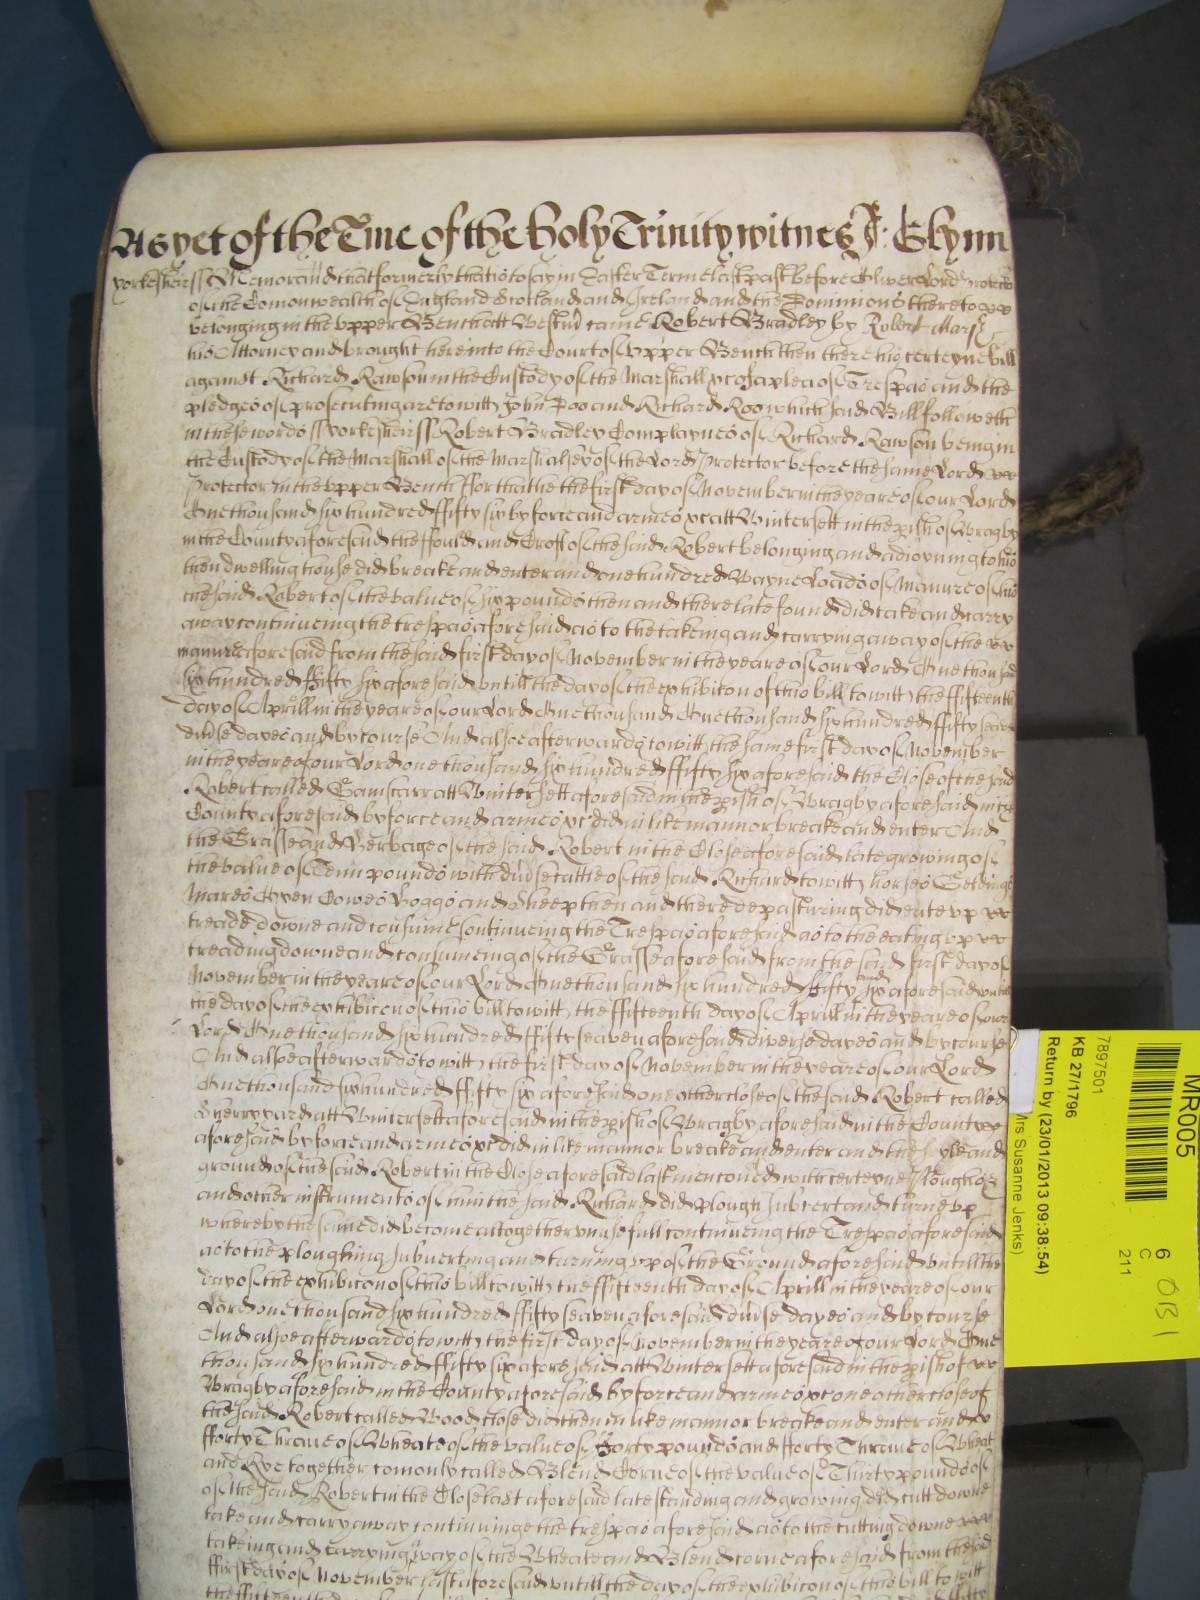 As yet of the Tme of the Holy Trinity witnes J: Glynn
yorkesheir ss Memorand that formerly that is to say in Easter Terme last past before Oliver Lord Protector
of the Comonwealth of England Scotland and Ireland and the Dominions thereto
belonging in the upper Bench att Westm came Robert Bradley by Robert Marsh
his Attorney and brought here into the Court of Upper Bench then there his certeyne bill
against Richard Rawson in the Custody of the Marshall &c of a plea of Trespas and the
pledges of prosecuting are to witt John Doo and Richard Roo which said Bill followeth
in these words ss yorkesheir ss Robert Bradley Complaynes of Richard Rawson being in
the Custody of the Marshall of the Marshalsey of the Lord Protector before the same Lord
Protector in the upper Bench ffor that he the first day of November in the yeare of our Lord
One thousand six hundred ffifty six by force and armes &c att Wintersett in the pish of Wragby
in the County aforesaid the ffould and Croft of the said Robert belonging and adioyning to his
then dwelling house did breake and enter and one hundred Wayne Loads of Manure of him
the said Robert of the value of six pounds then and there late found did take and carry
away continueing the trespas aforesaid as to the takeing and carrying away of the
manure aforesaid from the said first day of November in the yeare of our Lord One thousand
six hundred ffifty six aforesaid untill the day of the exhibicon of this bill to witt the ffifteenth
day of Aprill in the yeare of our Lord One thousand One thousand six hundred ffifty seaven
divrse dayes and by course And alsoe afterwards to witt the same first day of November
in the yeare of our Lord one thousand six hundred ffifty six aforesaid the Close of the said
Robert called Gamscarr att Wintersett aforesaid in the pish of Wragby aforesaid in the
County aforesaid by force and armes &c did in like mannor breake and enter And
the Grasse and Herbage of the said Robert in the Close aforesaid late growing of
the value of Tenn pounds with divrse cattle of the said Richard to witt horses Geldings
Mares Oxen Cowes Hoggs and Sheep then and there depasturing did eate up
treade downe and consume continueing the Trespas aforesaid as to the eating up
treading downe and consumeing of the Grasse aforesaid from the said first day of
November in the yeare of our Lord One thousand six hundred ffifty and six aforesaid untill
the day of the exhibicon of this bill to witt the ffifteenth day of Aprill in the yeare of our
Lord One thousand six hundred ffifty seaven aforesaid diverse dayes and by course
And alsoe afterwards to witt the first day of November in the yeare of our Lord
One thousand six hundred ffifty six aforesaid one other close of the said Robert called
Sherryyard att Wintersett aforesaid in the pish of Wragby aforesaid in the County
aforesaid by force and armes &c did in like mannor breake and enter and the soyle and
ground of the said Robert in the Close aforesaid last menconed with certeyne Ploughes
and other instruments of him the said Richard did plough subvert and turne up
whereby the same did become altogether unusefull continueing the Trespas aforesaid
as to the ploughing subverting and turning upp of the Ground aforesaid untill the
day of the exhibicon of this bill to witt the ffifteenth day of Aprill in the yeare of our
Lord one thousand six hundred ffifty seaven aforesaid divrse dayes and by course
And alsoe afterwards to witt the first day of November in the yeare of our Lord One
thousand six hundred ffifty six aforesaid att Wintersett aforesaid in the pish of
Wragby aforesaid in the County aforesaid by force and armes &c one other close of
the said Robert called Wood close did then in like mannor breake and enter and
fforty Thrave of Wheate of the value of fforty pounds and fforty Thrave of Wheat
and Rye together comonly called Blend Corne of the value of Thirty pounds of
of the said Robert in the Close last aforesaid late standing and growing did cutt downe
take and carry away continuinge the trespas aforesaid as to the cutting downe
takeing and carrying away of the Wheate and Blend corne aforesaid from the said
ffirst day of November last aforesaid untill the day of the exhibicon of this bill to witt
the ffifteenth
MR005
7897501
KB 27/1796
Return by (23/01/2013 09:38:54)
Mrs Susanne Jenks)
6
C
211
OB1